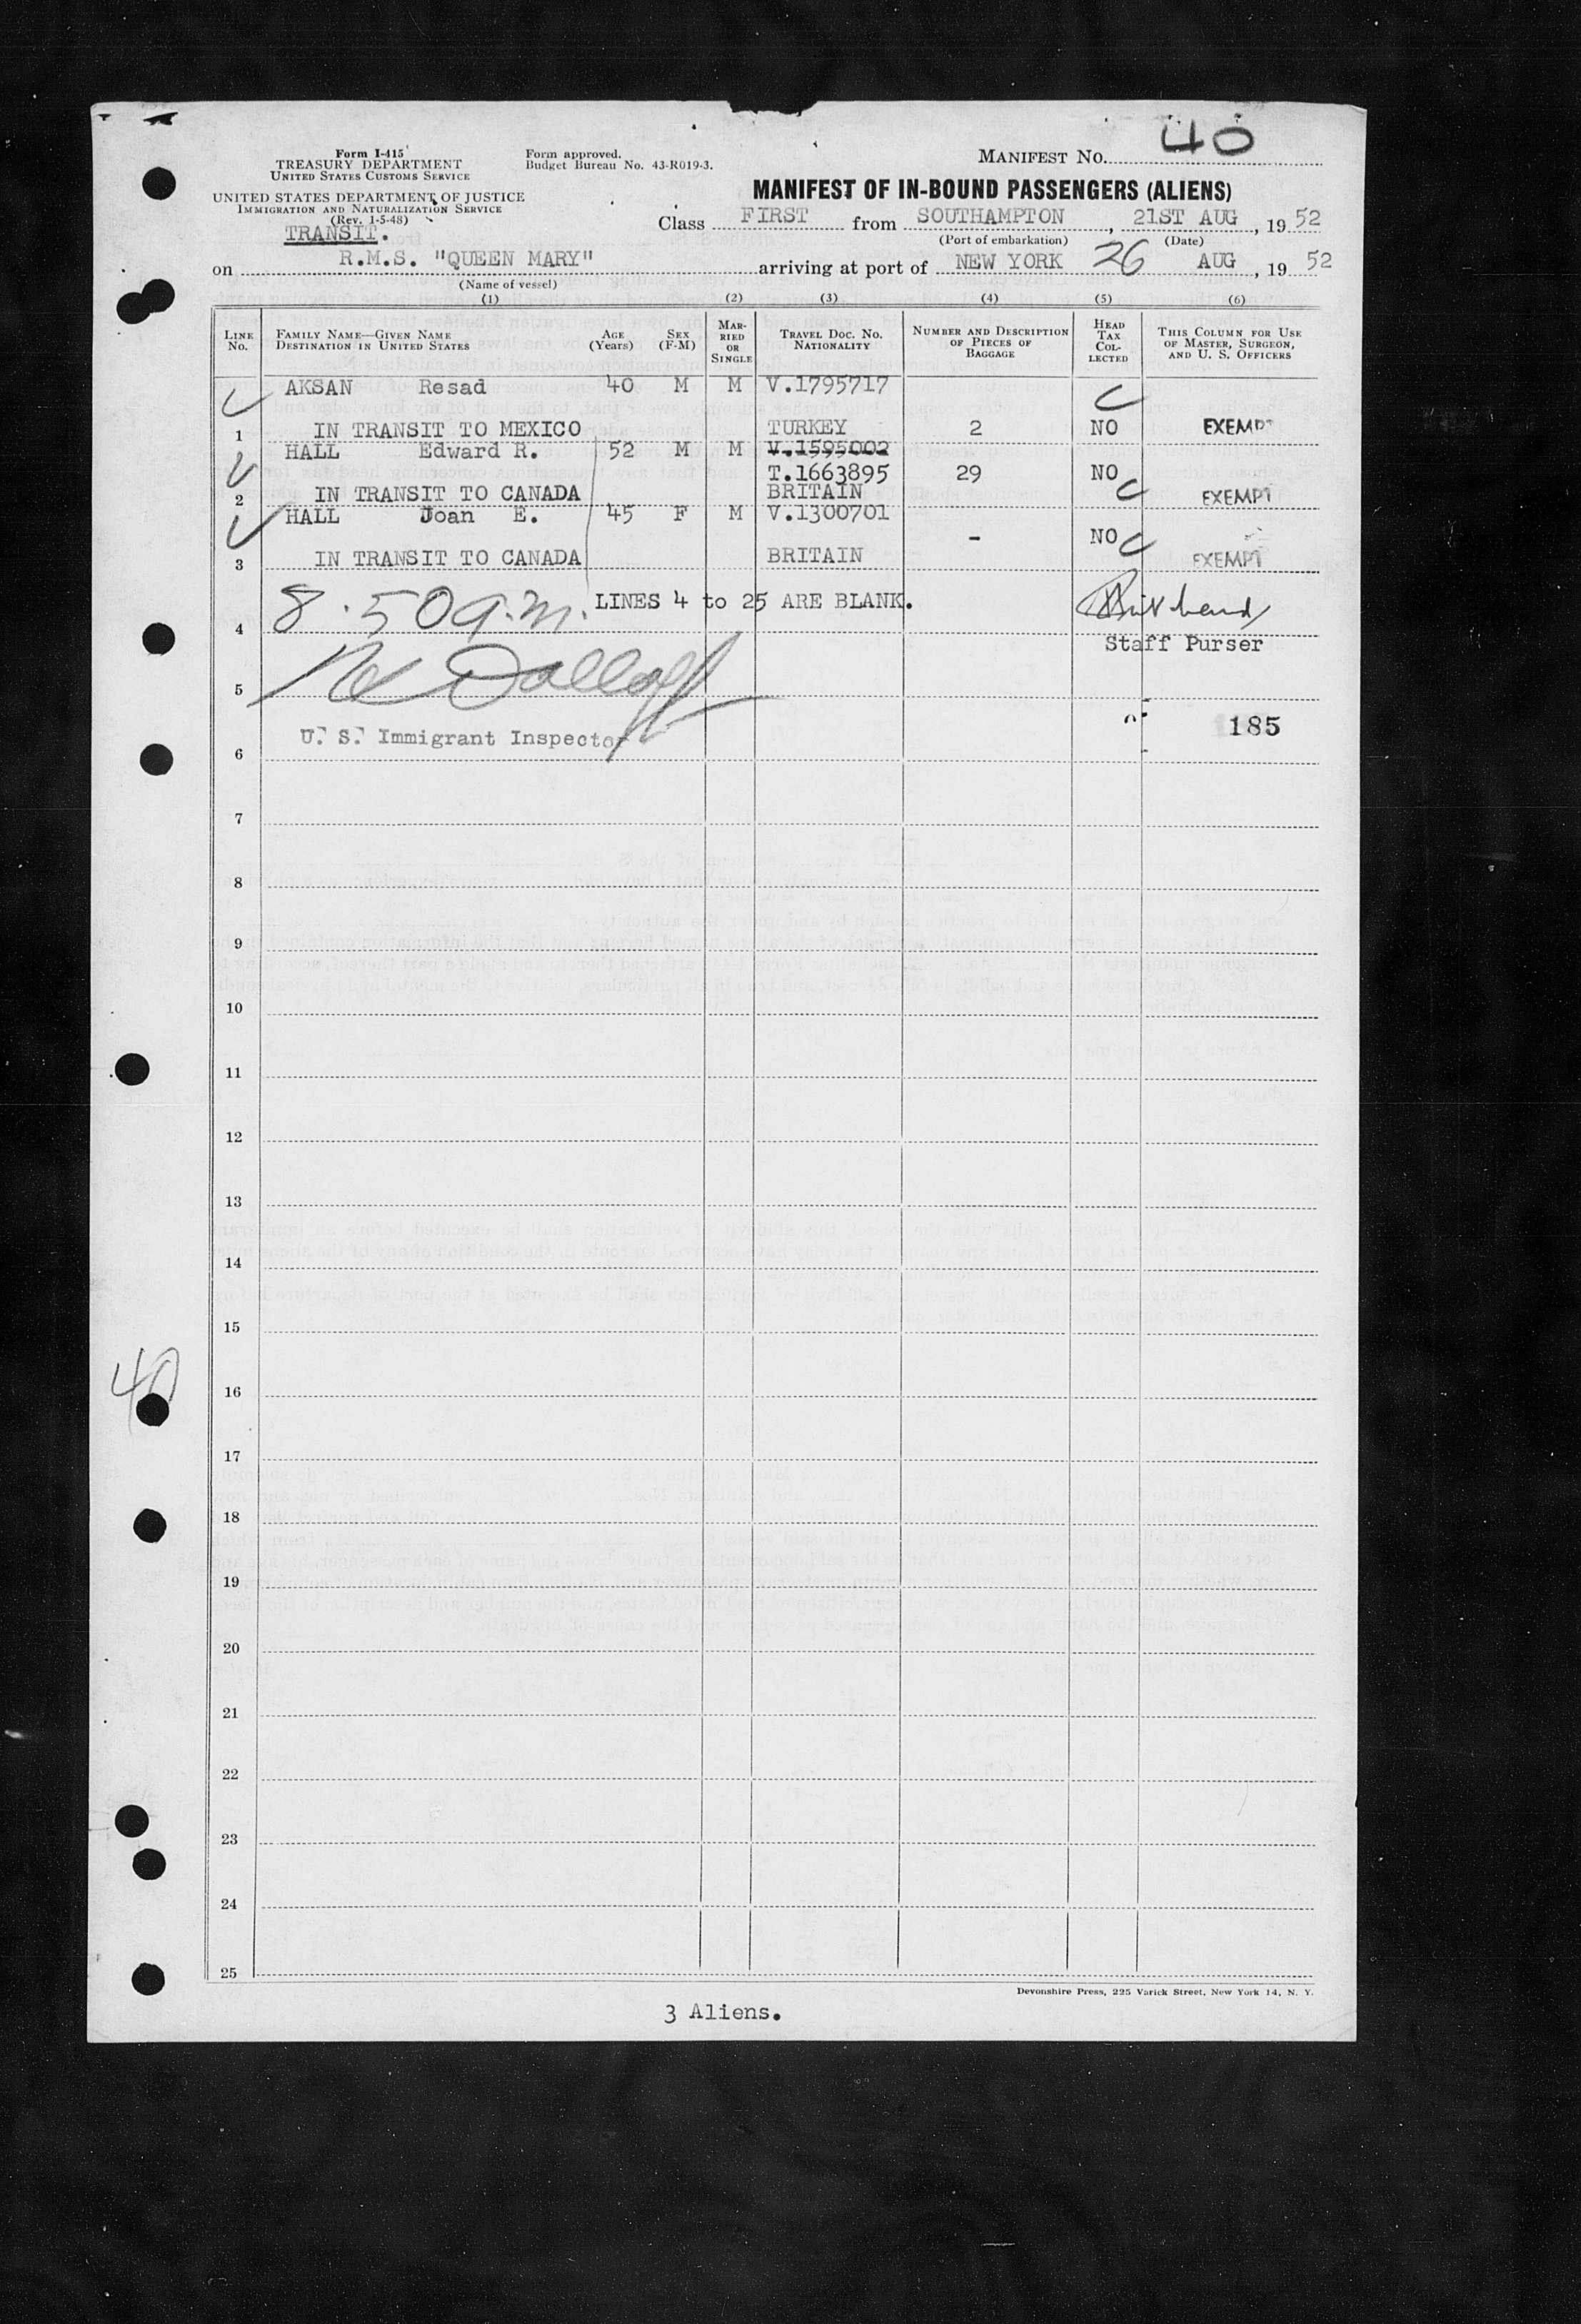 40
MANIFEST No.
Form I-415
TREASURY DEPARTMENT
UNITED STATES CUSTOMS SERVICE
Form approved.
Budget Bureau No. 43-R019-3.
UNITED STATES DEPARTMENT OF JUSTICE
IMMIGRATION AND NATURALIZATION SERVICE
(Rev. 1-5-48)
TRANSIT.
MANIFEST OF IN-BOUND PASSENGERS (ALIENS)
Class FIRST from SOUTHAMPTON, 21ST AUG, 19 52
(Port of embarkation) (Date)
on R.M.S. "QUEEN MARY" arriving at port of NEW YORK 26 AUG, 19 52
(Name of vessel)
(1) (2) (3) (4) (5) (6)
LINE No. FAMILY NAME—GIVEN NAME DESTINATION IN UNITED STATES AGE (Years) SEX (F-M) MARRIED OR SINGLE TRAVEL DOC. No. NATIONALITY NUMBER AND DESCRIPTION OF PIECES OF BAGGAGE HEAD TAX COLLECTED THIS COLUMN FOR USE OF MASTER, SURGEON, AND U. S. OFFICERS
AKSAN Resad 40 M M V.1795717
1 IN TRANSIT TO MEXICO TURKEY 2 NO EXEMPT
HALL Edward R. 52 M M V.1595002
T.1663895 29 NO
2 IN TRANSIT TO CANADA BRITAIN EXEMPT
HALL Joan E. 45 F M V.1300701
- NO
3 IN TRANSIT TO CANADA BRITAIN EXEMPT
8.50 a.m. LINES 4 to 25 ARE BLANK.
4
Staff Purser
5
185
U. S. Immigrant Inspector
6
7
8
9
10
11
12
13
14
15
40
16
17
18
19
20
21
22
23
24
25
Devonshire Press, 225 Varick Street, New York 14, N. Y.
3 Aliens.